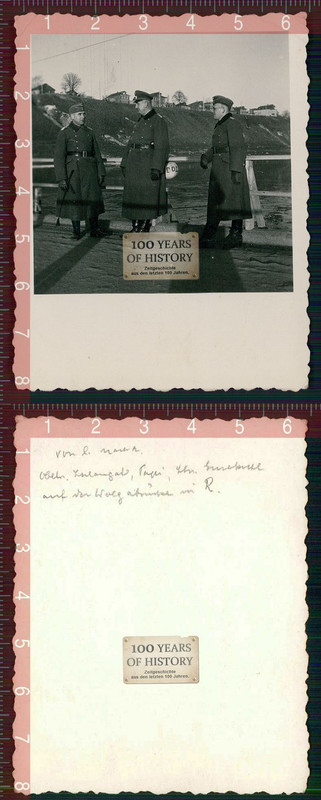 1 2 3 4 5 6
1
2
3
4
5
6
7
8
100 YEARS
OF HISTORY
Zeitgeschichte
aus den letzten 100 Jahren
1 2 3 4 5 6
1
2
3
4
5
6
7
8
von l. nach r.
auf der Wolgabrücke in R.
100 YEARS
OF HISTORY
Zeitgeschichte
aus den letzten 100 Jahren